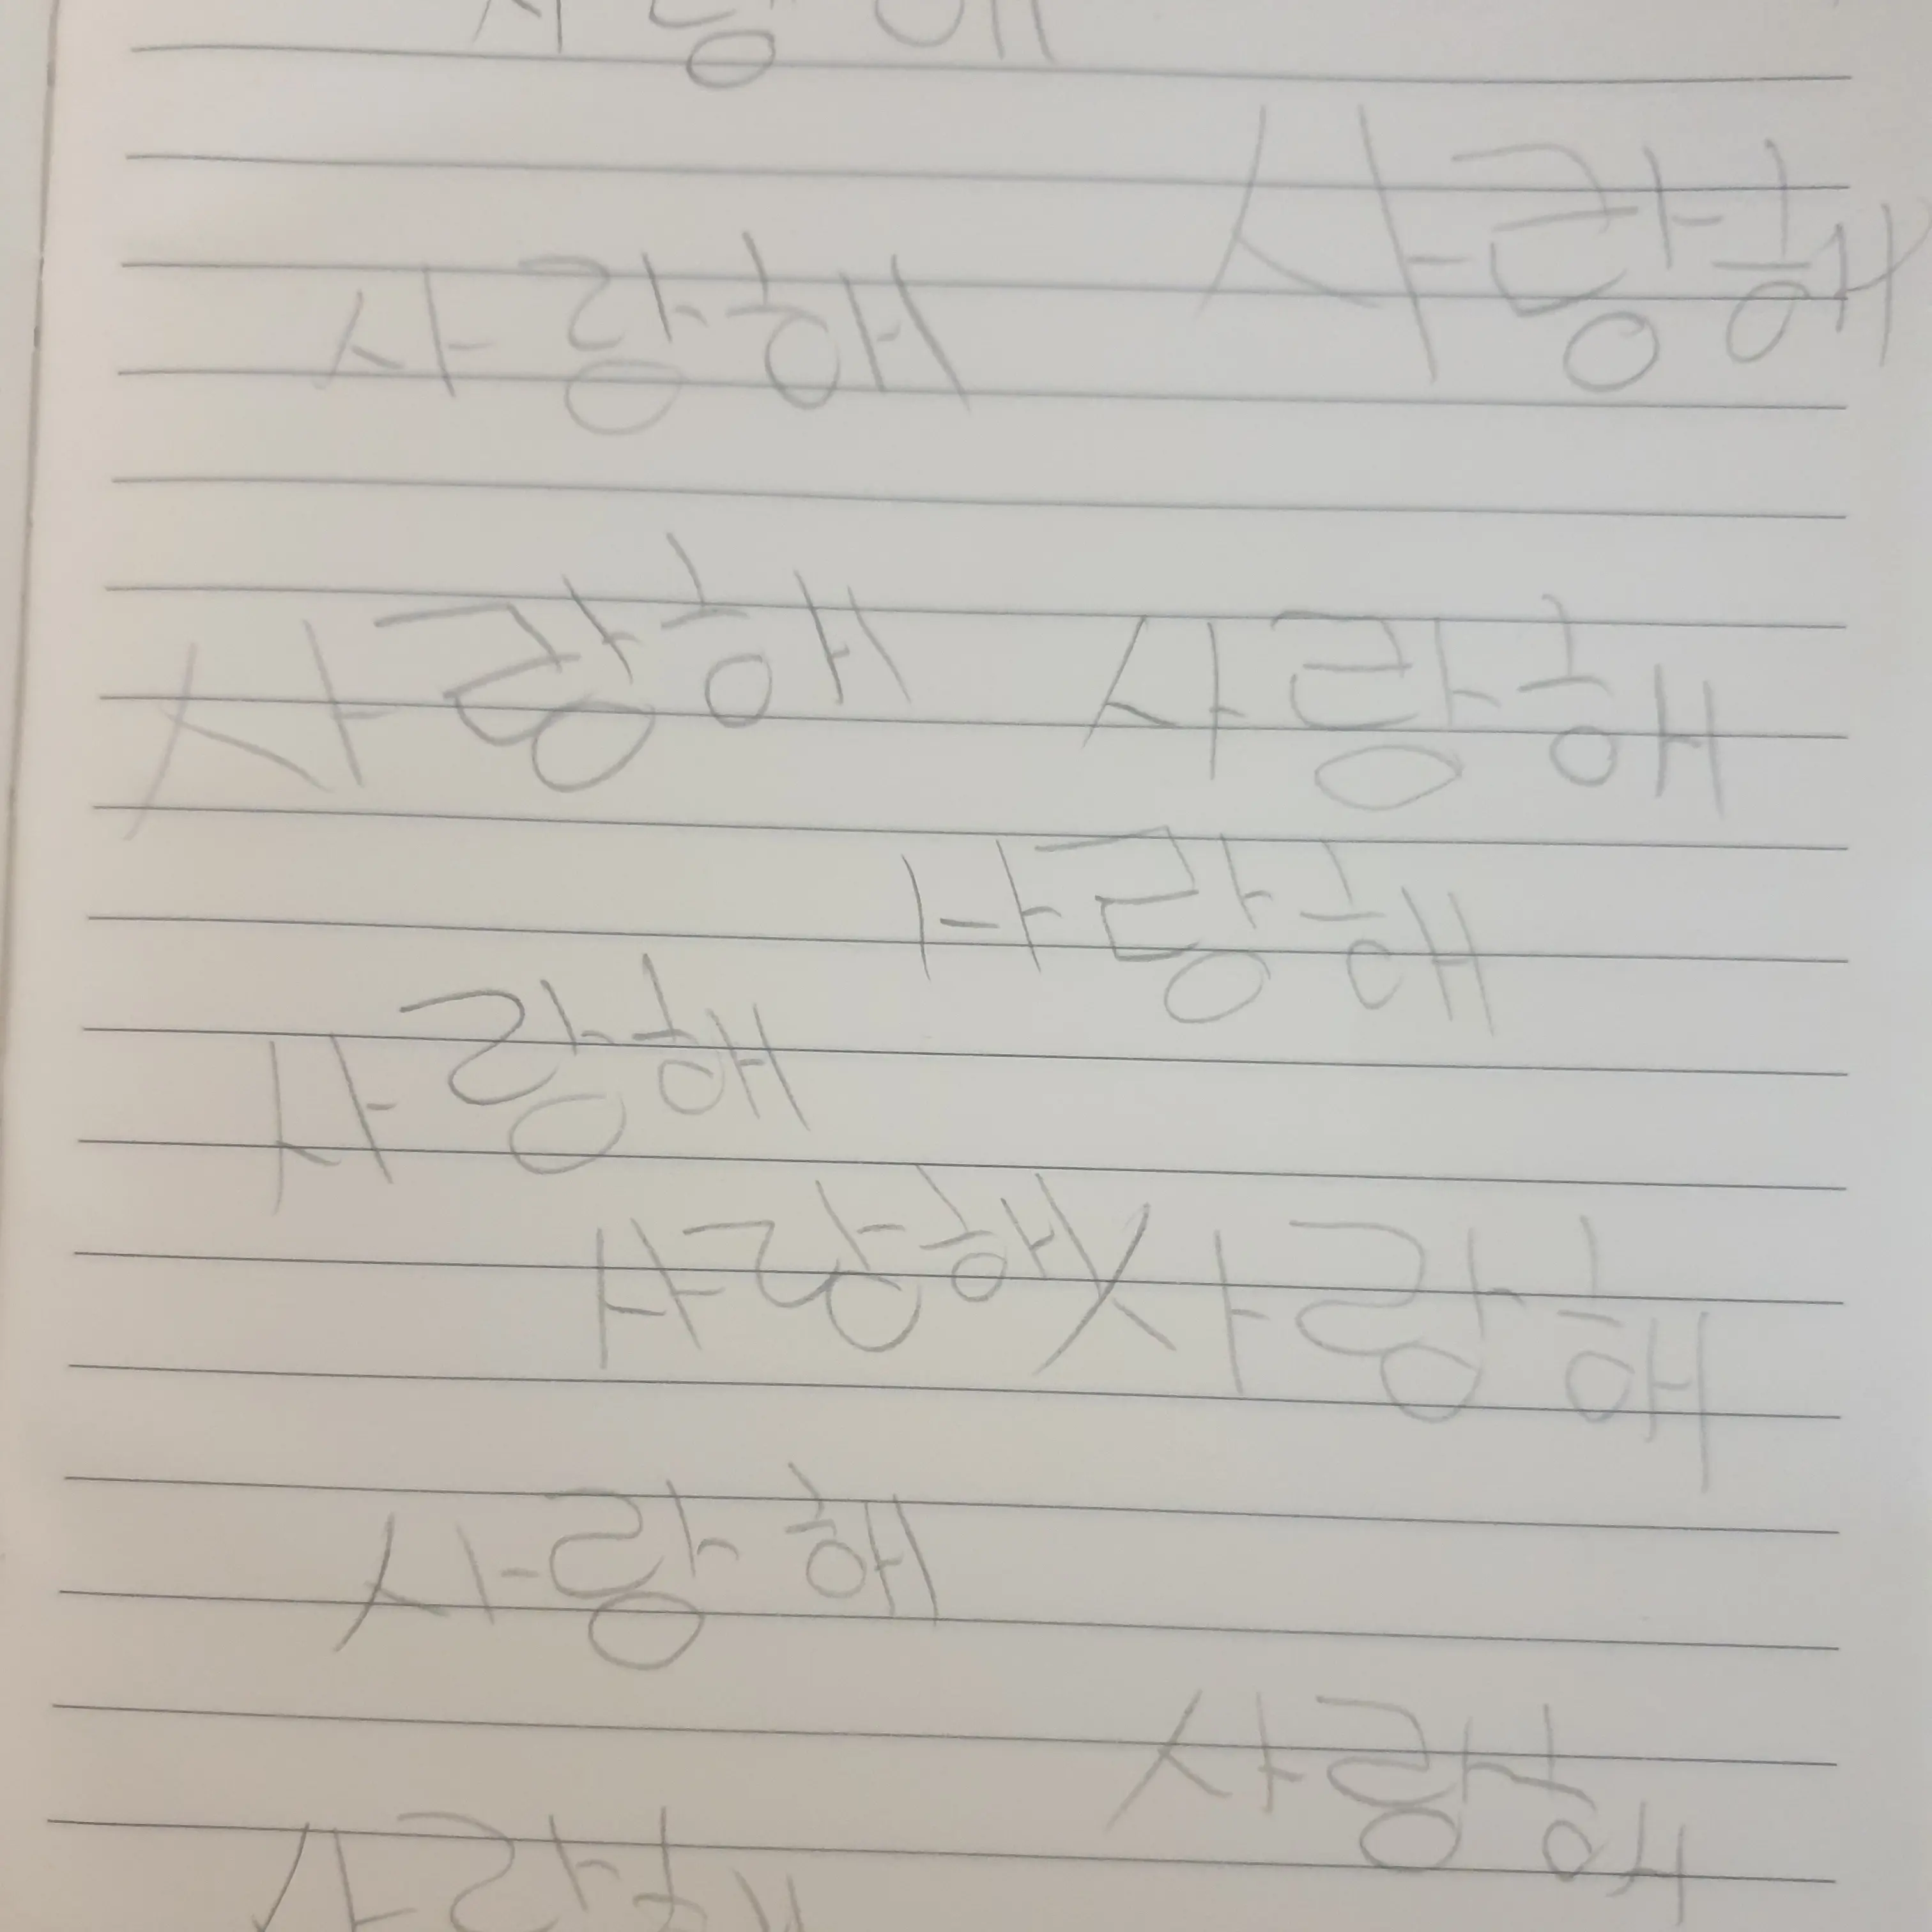 사랑해
사랑해
사랑해
사랑해 사랑해
사랑해
사랑해
사랑해 사랑해
사랑해
사랑해
사랑해